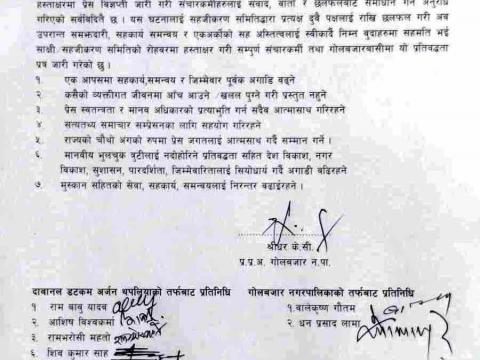 हस्ताक्षरमा प्रेस विज्ञप्ती जारी गरी संचारकर्मीहरुलाई संवाद, वार्ता र छलफलबाट समाधान गर्न अनुरोध
गरिएको सर्वविदितै छ । यस घटनालाई सहजीकरण समितिद्धारा प्रत्यक्ष दुवै पक्षलाई राखि छलफल गरी अब
उपरान्त समभ्मदारी, सहकार्य समन्वय र एकअर्को सह अस्तित्वलाई स्वीकार्दै निम्न बुदाहरुमा सहमति भई
साक्षी सहजीकरण समितिको रोहवरमा हस्ताक्षर गरी सम्पूर्ण संचारकर्मी तथा गोलबजारबासीमा यो प्रतिवद्धता
पत्र जारी गरेको छु ।
१ एक आपसमा सहकार्य,समन्वय र जिम्मेवार पूर्वक अगाडि बढ्ने
२ कसैको व्यक्तीगत जीवनमा आँच आउने ⁄ खलल पुग्ने गरी प्रस्तुत नहुने
३ प्रेस स्वतन्त्रता र मानव अधिकारको प्रत्याभुति गर्न सदैव आत्मासाथ गरिरहने
४ सत्यतथ्य समाचार सम्प्रेसनका लागि सहयोग गरिरहने
५. राज्यको चौथो अंगको रुपमा प्रेस जगतलाई आत्मसाथ गर्दै सम्मान गर्ने ।
६. मानवीय भुलचुक त्रुटीलाई नदोहोरिने प्रतिवद्धता सहित देश विकाश, नगर
विकाश, सुशासन, पारदर्शिता, जिम्मेवारितालाई सिरोधार्य गर्दै अगाडी बढिरहने
७. मुस्कान सहितको सेवा, सहकार्य, समन्वयलाई निरन्तर बढाईरहने ।
श्रीधर के.सी.
प.प्र.अ. गोलबजार न.पा.
दाबानल डटकम अर्जन थपलियाको तर्फबाट प्रतिनिधि गोलबजार नगरपालिकाको तर्फबाट प्रतिनिधि
१ राम बाबु यादव १.बालेकृष्ण गौतम
२. आशिष विश्वकर्मा २. धन प्रसाद लामा
३ रामभरोसी महतो
४ शिव कुमार साह